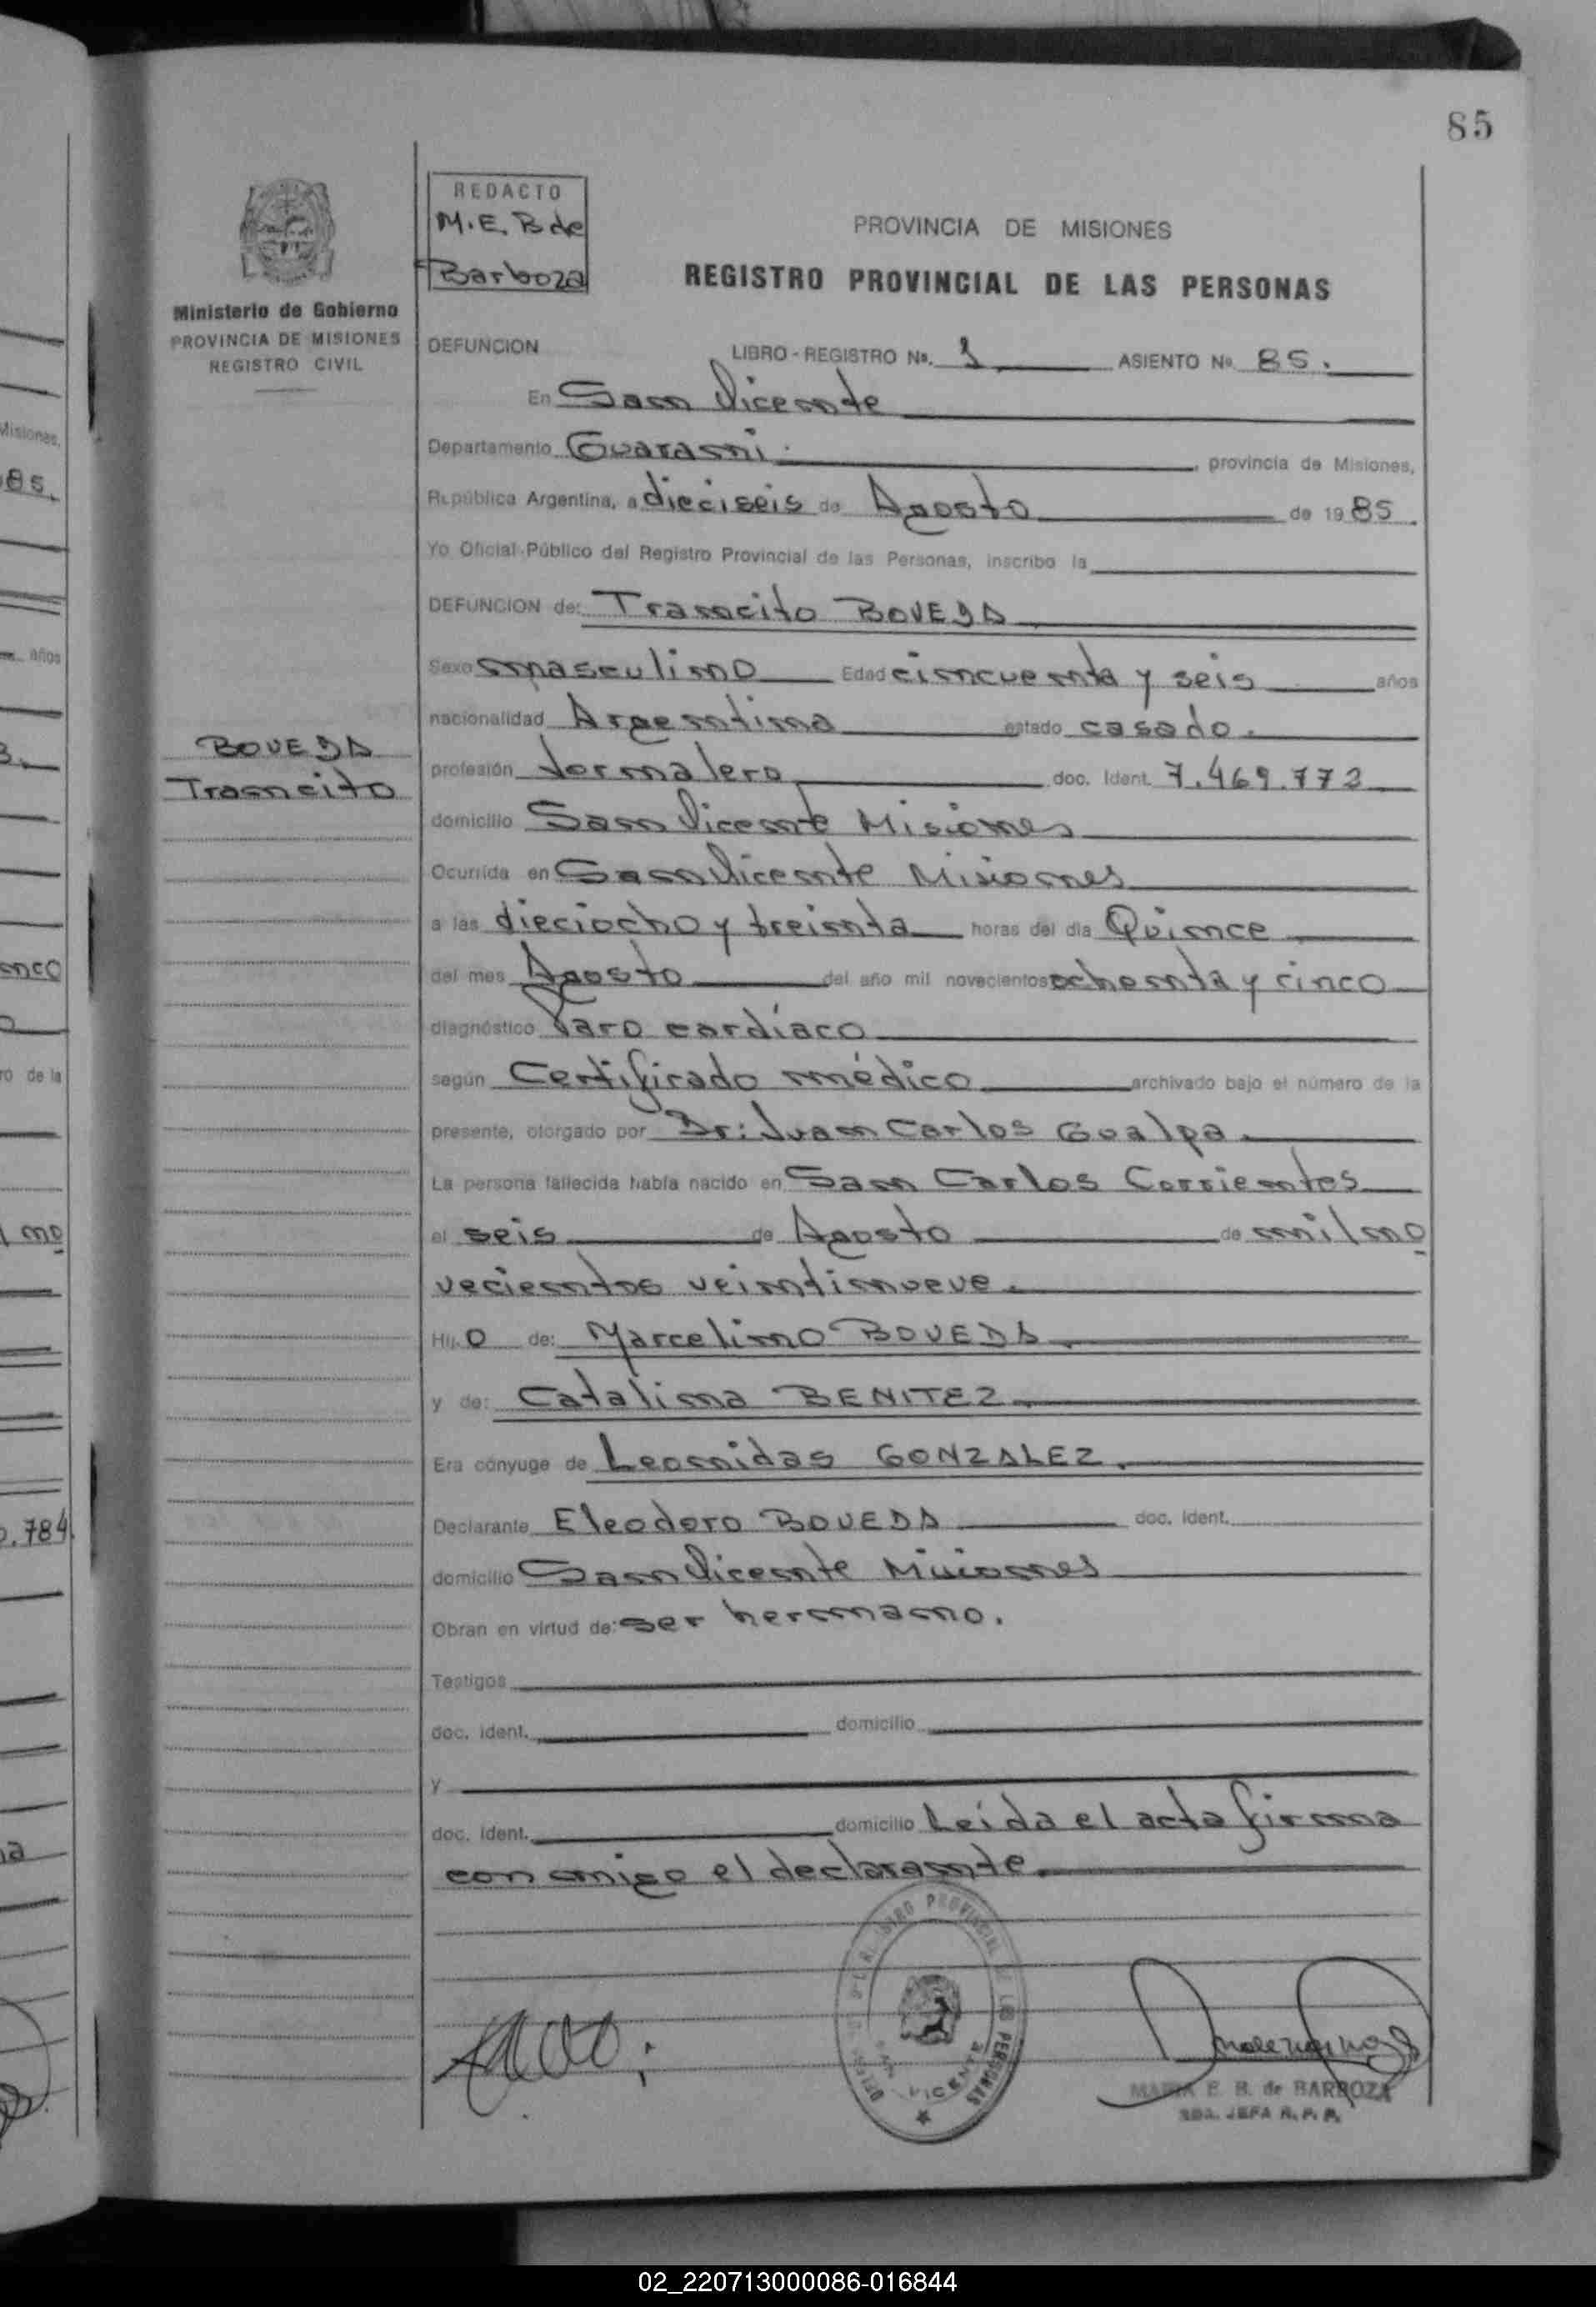 85
REDACTO
M.E. B de
Barboza
PROVINCIA DE MISIONES
REGISTRO PROVINCIAL DE LAS PERSONAS
Ministerio de Gobierno
PROVINCIA DE MISIONES
REGISTRO CIVIL
DEFUNCION LIBRO - REGISTRO Nº. 1 ASIENTO Nº 85.
En San Vicente
Departamento Guaraní. , provincia de Misiones,
República Argentina, a dieciseis de Agosto de 1985.
Yo Oficial Público del Registro Provincial de las Personas, inscribo la
DEFUNCION de: Trancito BOVEDA
Sexo masculino Edad cincuenta y seis años
nacionalidad Argentina estado casado.
BOVEDA
Trancito
profesión Jornalero doc. Ident. 7.469.772
domicilio San Vicente Misiones
Ocurrida en San Vicente Misiones
a las dieciocho y treinta horas del día Quince
del mes Agosto del año mil novecientos ochenta y cinco
diagnóstico Paro cardíaco
según Certificado médico archivado bajo el número de la
presente, otorgado por Dr: Juan Carlos Gualpa.
La persona fallecida había nacido en San Carlos Corrientes
el seis de Agosto de mil no
vecientos veintinueve.
Hijo de: Marcelino BOVEDA.
y de: Catalina BENITEZ.
Era cónyuge de Leonidas GONZALEZ.
Declarante Eleodoro BOVEDA doc. ident.
domicilio San Vicente Misiones
Obran en virtud de: ser hermano.
Testigos
doc. ident. domicilio
y
doc. ident. domicilio Leída el acta firma
con migo el declarante.
REGISTRO PROVINCIAL DE LAS PERSONAS
SAN VICENTE
MARIA E. B. de BARBOZA
JEFA R. P. P.
Misiones,
85.
años
ro de la
no
.784
02_220713000086-016844